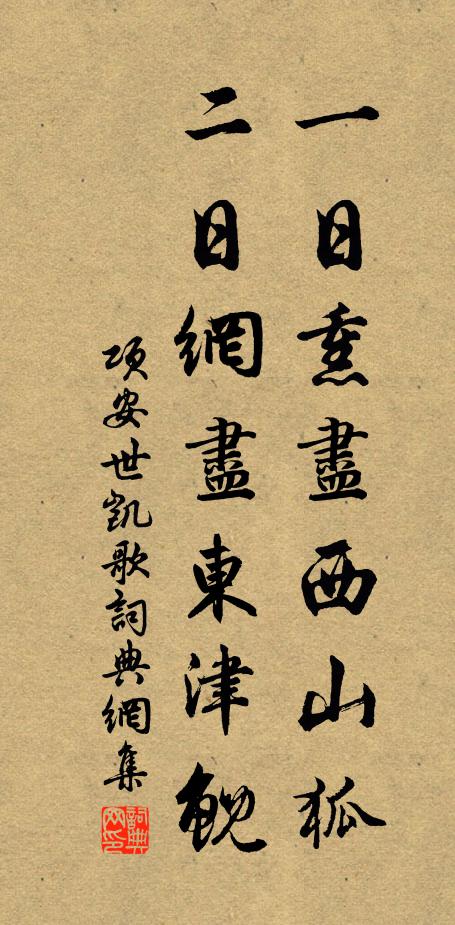 一日熏盡西山狐
二日網盡東津鯢
項安世凱歌詞典網集
詞典
网印